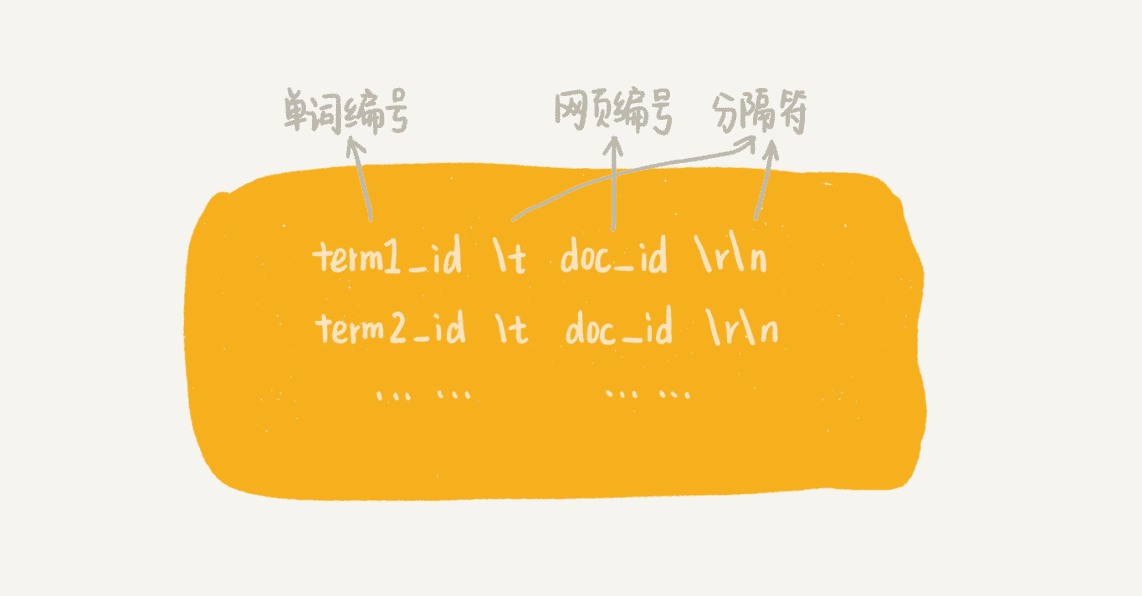 单词编号 网页编号 分隔符
term1_id \t doc_id \r\n
term2_id \t doc_id \r\n
... ... ... ...